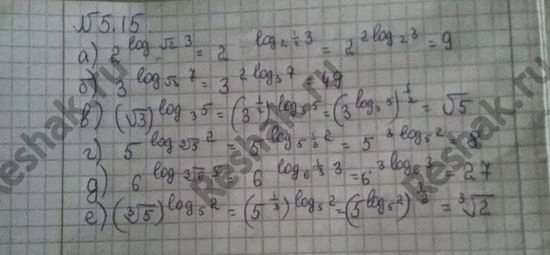 №5.15.
а) 2^{log_{√2} 3} = 2^{log_{2^{1/2}} 3} = 2^{2 log_2 3} = 9
б) 3^{log_{√3} 7} = 3^{2 log_3 7} = 49
в) (√3)^{log_3 5} = (3^{1/2})^{log_3 5} = (3^{log_3 5})^{1/2} = √5
г) 5^{log_{∛5} 2} = 5^{log_{5^{1/3}} 2} = 5^{3 log_5 2} = 8
д) 6^{log_{∛6} 3} = 6^{log_{6^{1/3}} 3} = 6^{3 log_6 3} = 27
е) (∛5)^{log_5 2} = (5^{1/3})^{log_5 2} = (5^{log_5 2})^{1/3} = ∛2
Reshak.ru
Reshak.ru
Reshak.ru